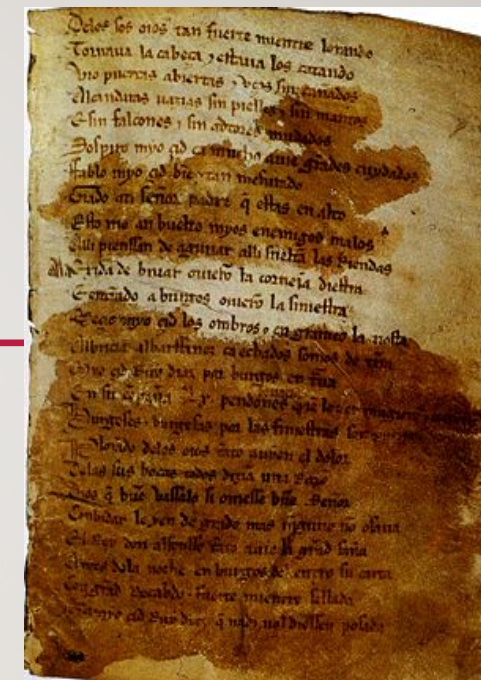 Delos sos oios tan fuerte mientre lorando
Tornaua la cabeça ⁊ estaua los catando
Vio puertas abiertas ⁊ vços sin cañados
Alcandaras uazias sin pielles ⁊ sin mantos
E sin falcones ⁊ sin adtores mudados
Sospiro myo çid ca mucho auie grãdes cuydados
Fablo myo çid bien ⁊ tan mesurado
Grado ati señor padre q̃ estas en alto
Esto me an buelto myos enemigos malos
Alli pienssan de aguiiar alli sueltã las Riendas
Ala exida de biuar ouierõ la corneia diestra
E entrãdo a burgos ouierõ la siniestra
Meçio myo çid los ombros ⁊ en grameo la tiesta
Albricia albarffanez ca echados somos de
Myo çid Ruy diaz por burgos en
En su pendones
Burgeses ⁊ burgesas por las finiestras son
Plorãdo delos oios tãto auyen el dolor
Delas sus bocas todos dizian una Razõ
Dios q̃ buẽ vassalo si ouiesse buẽ Señor
Conbidar le yen de grado mas ninguno no osaua
El Rey don alfonsso tãto auie la grãd saña
Antes dela noche en burgos del entro su carta
Con grãd Recabdo ⁊ fuerte mientre sellada
myo çid Ruy diaz q̃ nadi nol diessen posada